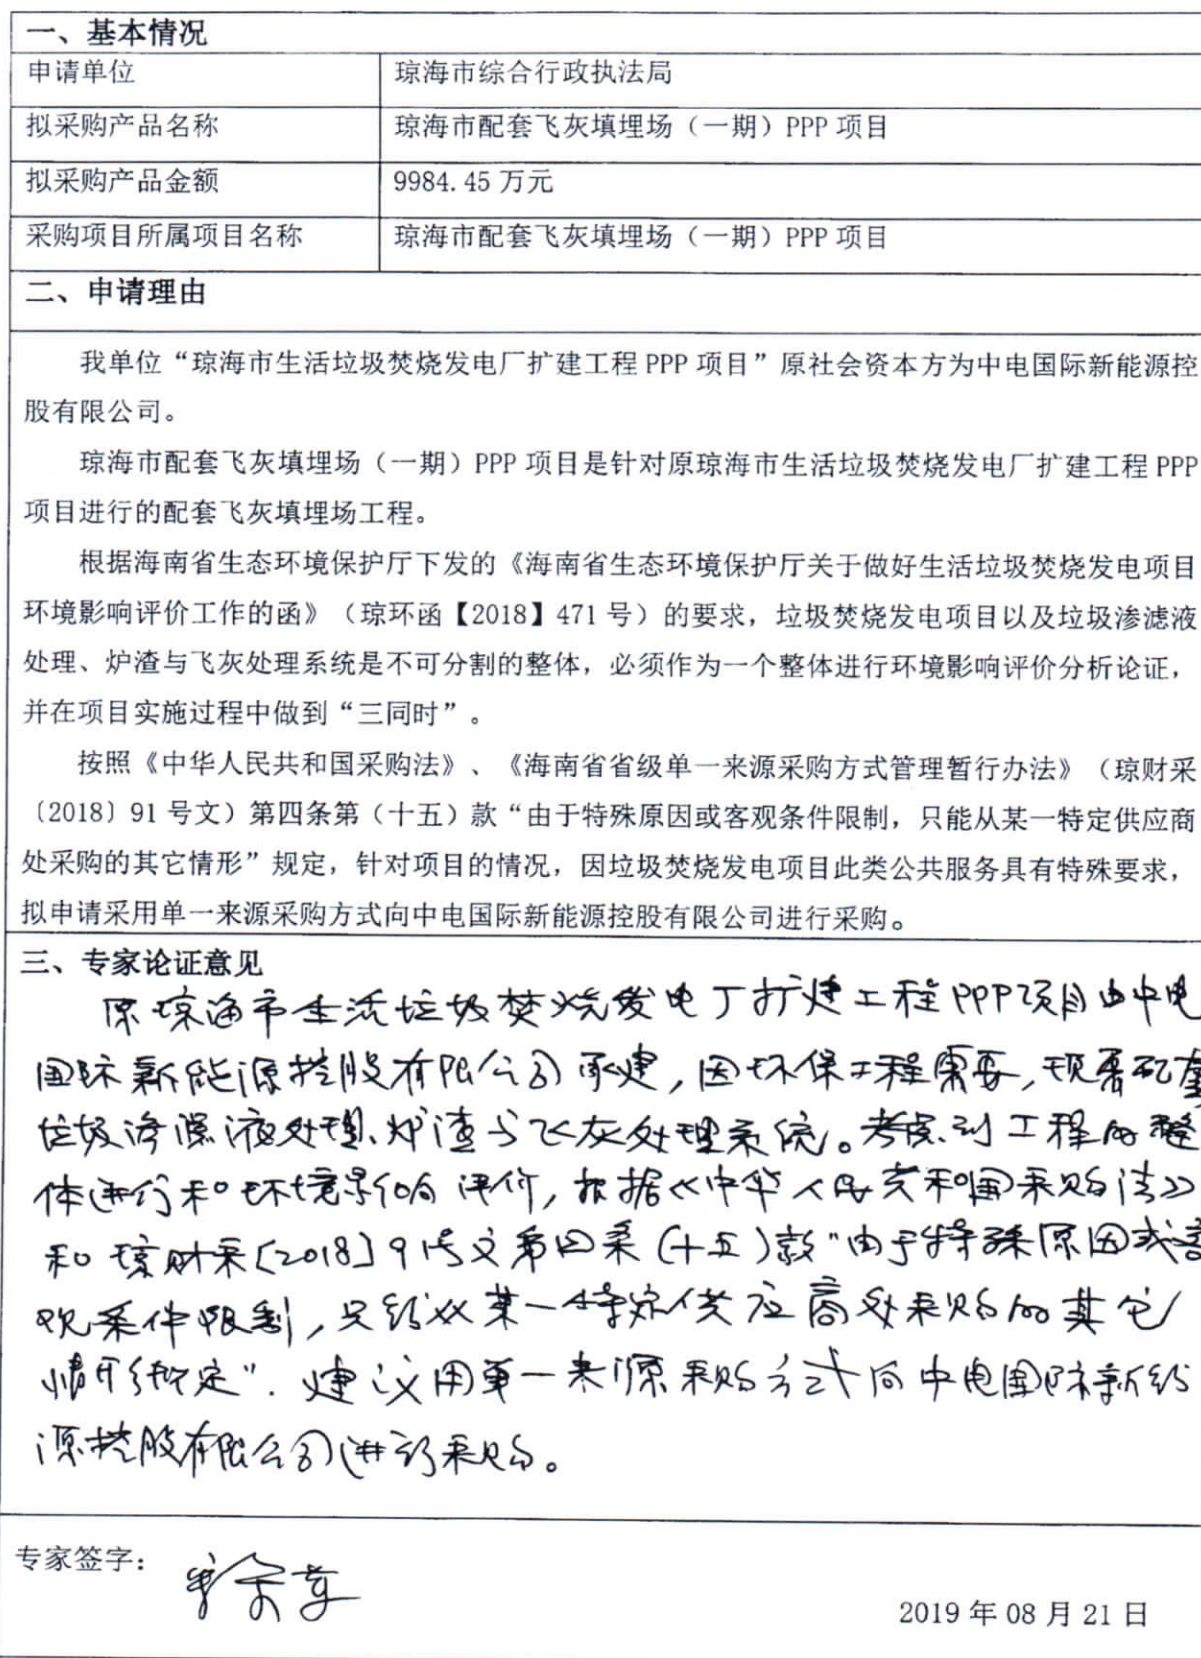 一、基本情况
申请单位 琼海市综合行政执法局
拟采购产品名称 琼海市配套飞灰填埋场（一期）PPP 项目
拟采购产品金额 9984.45 万元
采购项目所属项目名称 琼海市配套飞灰填埋场（一期）PPP 项目
二、申请理由
我单位“琼海市生活垃圾焚烧发电厂扩建工程 PPP 项目”原社会资本方为中电国际新能源控
股有限公司。
琼海市配套飞灰填埋场（一期）PPP 项目是针对原琼海市生活垃圾焚烧发电厂扩建工程 PPP
项目进行的配套飞灰填埋场工程。
根据海南省生态环境保护厅下发的《海南省生态环境保护厅关于做好生活垃圾焚烧发电项目
环境影响评价工作的函》（琼环函【2018】471 号）的要求，垃圾焚烧发电项目以及垃圾渗滤液
处理、炉渣与飞灰处理系统是不可分割的整体，必须作为一个整体进行环境影响评价分析论证，
并在项目实施过程中做到“三同时”。
按照《中华人民共和国采购法》、《海南省省级单一来源采购方式管理暂行办法》（琼财采
〔2018〕91 号文）第四条第（十五）款“由于特殊原因或客观条件限制，只能从某一特定供应商
处采购的其它情形”规定，针对项目的情况，因垃圾焚烧发电项目此类公共服务具有特殊要求，
拟申请采用单一来源采购方式向中电国际新能源控股有限公司进行采购。
三、专家论证意见
原琼海市生活垃圾焚烧发电厂扩建工程PPP项目由中电
国际新能源控股有限公司承建，因环保工程需要，现需配套
垃圾渗滤液处理、炉渣与飞灰处理系统。考虑到工程的整
体进行和环境影响评价，根据《中华人民共和国采购法》
和琼财采[2018]91号文第四条(十五)款“由于特殊原因或客
观条件限制，只能从某一特定供应商处采购的其它
情形规定”.建议用单一来源采购方式向中电国际新能
源控股有限公司进行采购。
专家签字：
2019 年 08 月 21 日